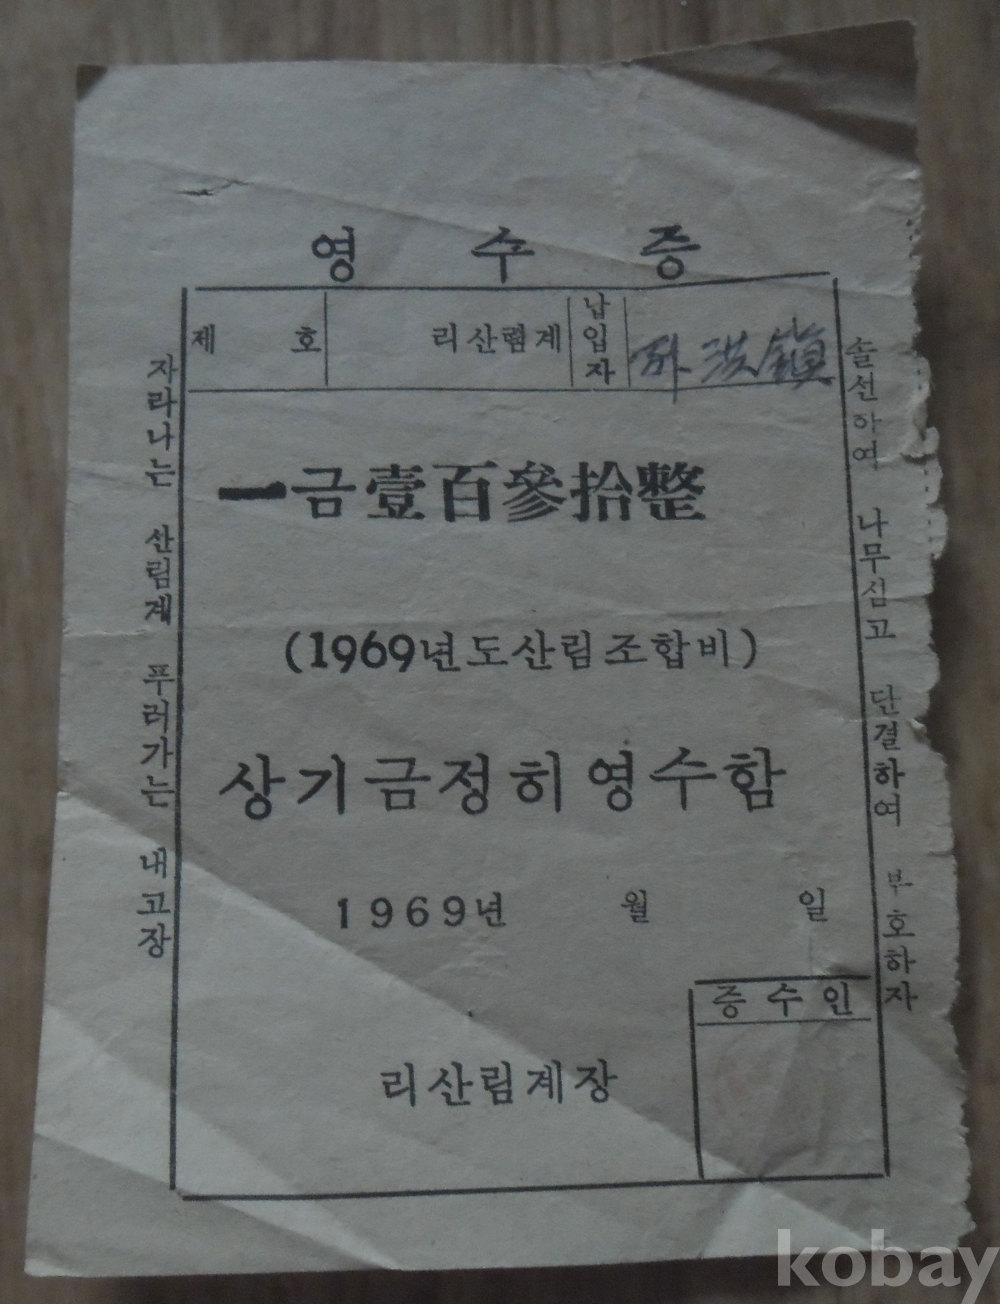 영 수 증
제 호 리산림계 납입자 洪鎭
一금壹百參拾整
(1969년도산림조합비)
상기금정히영수함
1969년 월 일
증수인
리산림계장
자라나는 산림계 푸러가는 내고장
솔선하여 나무심고 단결하여 부호하자
kobay